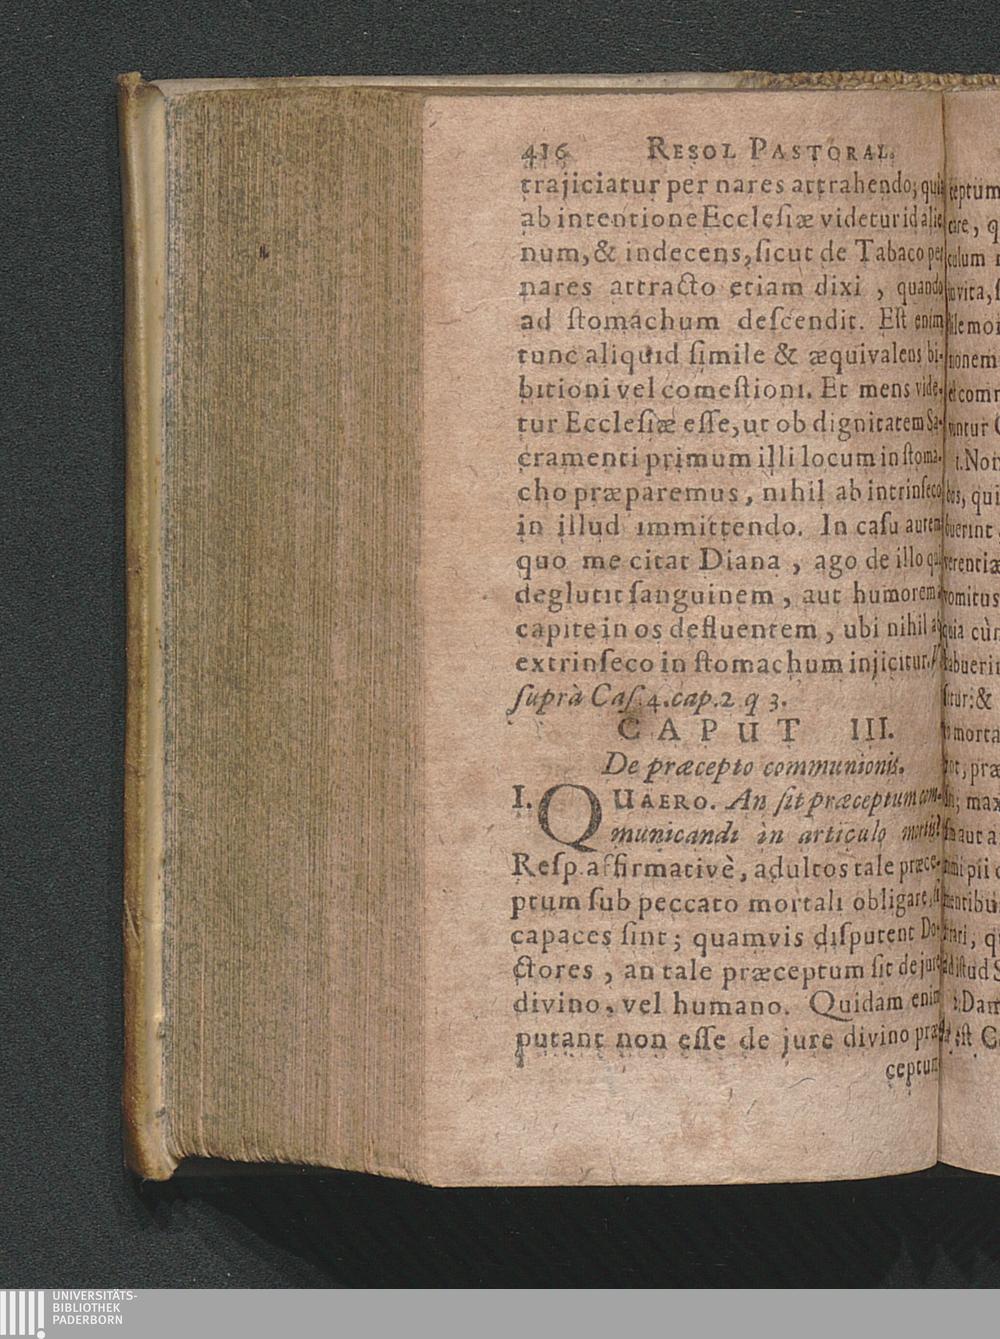 416 RESOL PASTORAL.
trajiciatur per nares attrahendo; quia
ab intentione Ecclesiæ videtur id alie
num, & indecens, sicut de Tabaco per
nares attracto etiam dixi, quando
ad stomachum descendit. Est enim
tunc aliquid simile & æquivalens bi-
bitioni vel comestioni. Et mens vide-
tur Ecclesiæ esse, ut ob dignitatem Sa-
cramenti primum illi locum in stoma-
cho præparemus, nihil ab intrinseco
in illud immittendo. In casu autem
quo me citat Diana, ago de illo qui
deglutit sanguinem, aut humorem
capite in os defluentem, ubi nihil ab
extrinseco in stomachum injicitur.
suprà Cas. 4. cap. 2 q 3.
CAPUT III.
De præcepto communionis.
I. QUAERO. An sit præceptum com-
municandi in articulo mortis?
Resp. affirmativè, adultos tale præce-
ptum sub peccato mortali obligare, si
capaces sint; quamvis disputent Do-
ctores, an tale præceptum sit de jure
divino, vel humano. Quidam enim
putant non esse de jure divino præ-
ceptum
ceptum
q
culum
vita,
nonem
vuntur
1. Non
qui
verentiæ
vomitus
quia cùm
&
præ
max
aut a
pii
istud S
2. Dam
est
UNIVERSITÄTS-
BIBLIOTHEK
PADERBORN